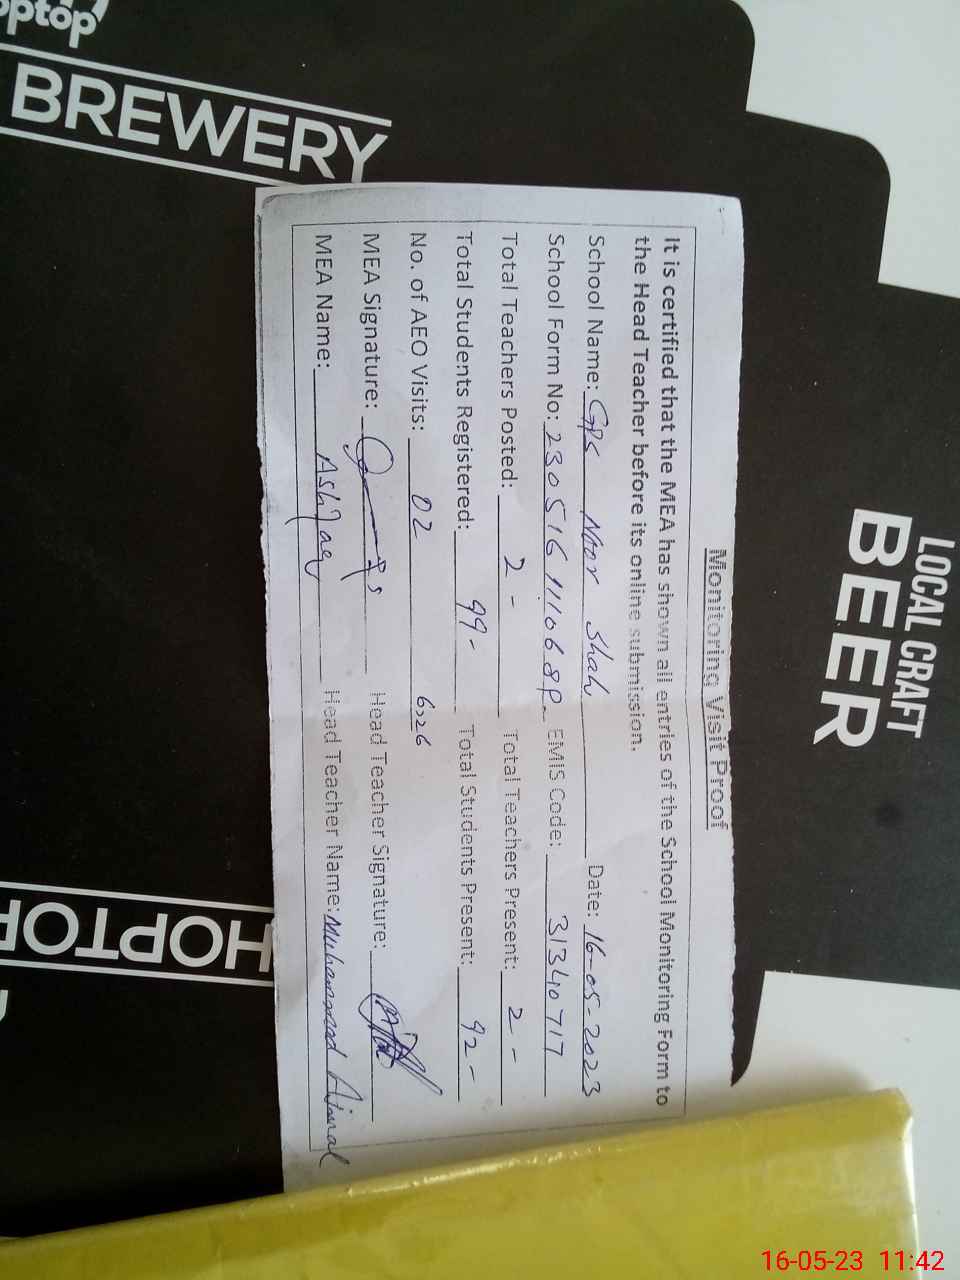 ptop
BREWERY
LOCAL CRAFT
BEER
HOPTOP
Monitoring Visit Proof
It is certified that the MEA has shown all entries of the School Monitoring Form to
the Head Teacher before its online submission.
School Name: GPS Noor Shah Date: 16-05-2023
School Form No: EMIS Code: 31340717
Total Teachers Posted: 2 - Total Teachers Present: 2 -
Total Students Registered: 99 - Total Students Present: 92 -
No. of AEO Visits: 02
MEA Signature: Head Teacher Signature:
MEA Name: Ashfaq Head Teacher Name: Muhammad Ajmal
16-05-23 11:42